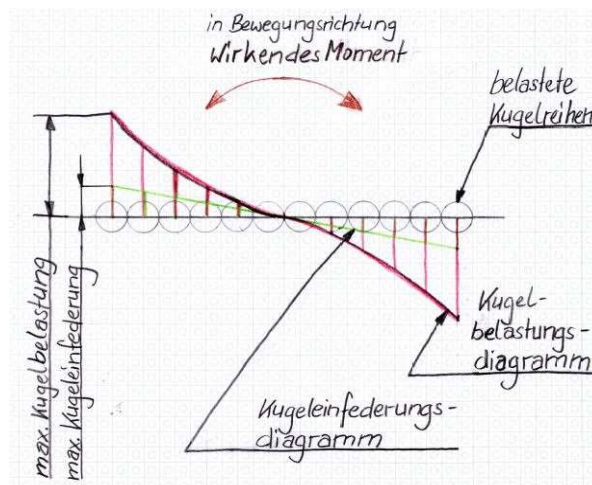 in Bewegungsrichtung
Wirkendes Moment
belastete
Kugelreihen
max. Kugelbelastung
max. Kugeleinfederung
Kugel-
belastungs-
diagramm
Kugeleinfederungs-
diagramm